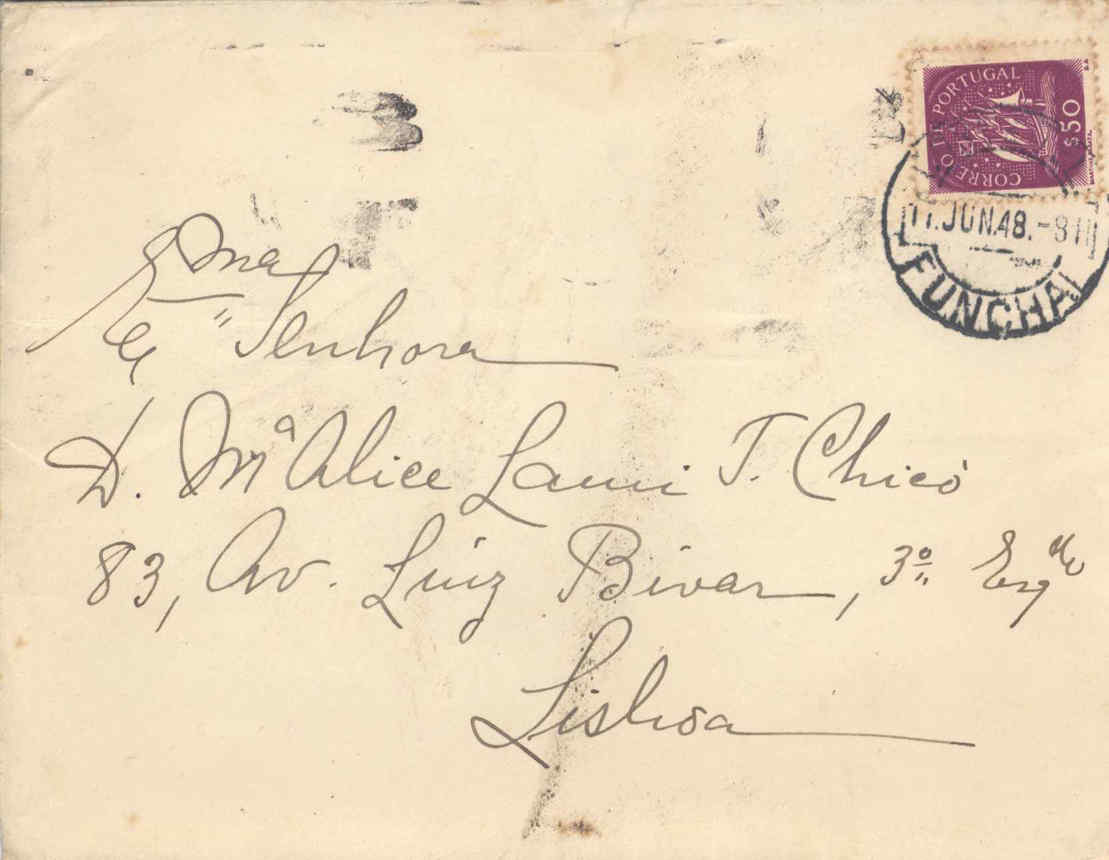 CORREIO DE PORTUGAL
$50
11.JUN.48.-8
FUNCHAL
Exma
Senhora
D. Mª Alice Lami T. Chicó
83, Av. Luiz Bivar, 3º Esqdo
Lisboa